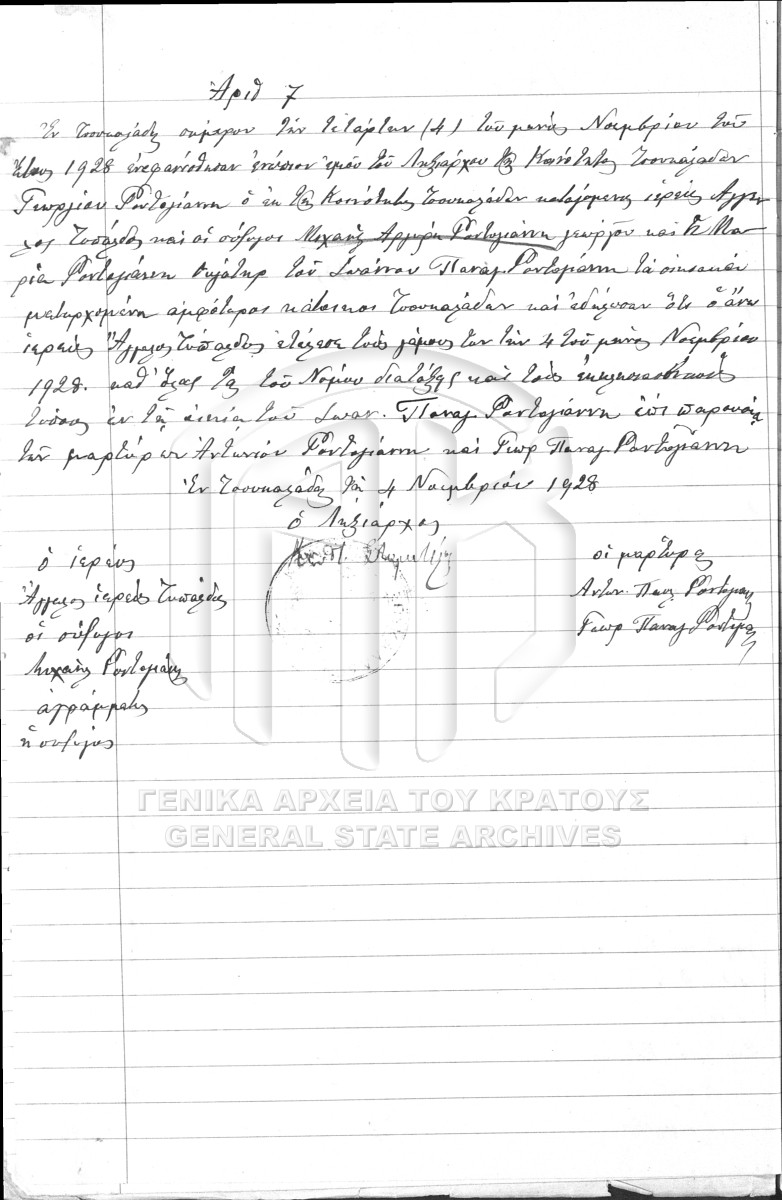 Ἀριθ 7
Ἐν Τσουκαλάδες σήμερον τὴν τετάρτην (4) τοῦ μηνὸς Νοεμβρίου τοῦ
ἔτους 1928 ἐνεφανίσθησαν ἐνώπιον ἐμοῦ τοῦ Ληξιάρχου τῆς Κοινότητος Τσουκαλάδων
Γεωργίου Ροντογιάννη ὁ ἐκ τῆς Κοινότητος Τσουκαλάδων καταγόμενος ἱερεὺς Ἀγγε
λος Τυπάλδος καὶ οἱ σύζυγοι Μιχαὴλ Αργυρη Ροντογιάννη γεωργοῦ καὶ ἡ Μα
ρία Ροντογιάννη θυγάτηρ τοῦ Ἰωάννου Παναγ. Ροντογιάννη τὰ οἰκιακὰ
μετερχομένη ἀμφότεροι κάτοικοι Τσουκαλάδων καὶ ἐδήλωσαν ὅτι ὁ ἄνω
ἱερεὺς Ἄγγελος Τυπάλδος ἐτέλεσε τοὺς γάμους των τὴν 4 τοῦ μηνὸς Νοεμβρίου
1928. καθ' ὅλας τὰς τοῦ Νόμου διατάξεις καὶ τοὺς ἐκκλησιαστικοὺς
τύπους ἐν τῇ οἰκίᾳ τοῦ Ἰωαν. Παναγ. Ροντογιάννη ἐπὶ παρουσίᾳ
τῶν μαρτύρων Ἀντωνίου Ροντογιάννη καὶ Γεωρ Παναγ Ροντογιάννη
Ἐν Τσουκαλάδες τῇ 4 Νοεμβρίου 1928
ὁ Ληξίαρχος
ὁ ἱερεὺς
οἱ μάρτυρες
Ἄγγελος ἱερεὺς Τυπάλδος
Αντων. Παν. Ροντογιαν
οἱ σύζυγοι
Γεωρ Παναγ Ροντογια
Μιχαὴλ Ροντογιάνης
ἀγράμματος
ἡ σύζυγος
ΓΕΝΙΚΑ ΑΡΧΕΙΑ ΤΟΥ ΚΡΑΤΟΥΣ
GENERAL STATE ARCHIVES